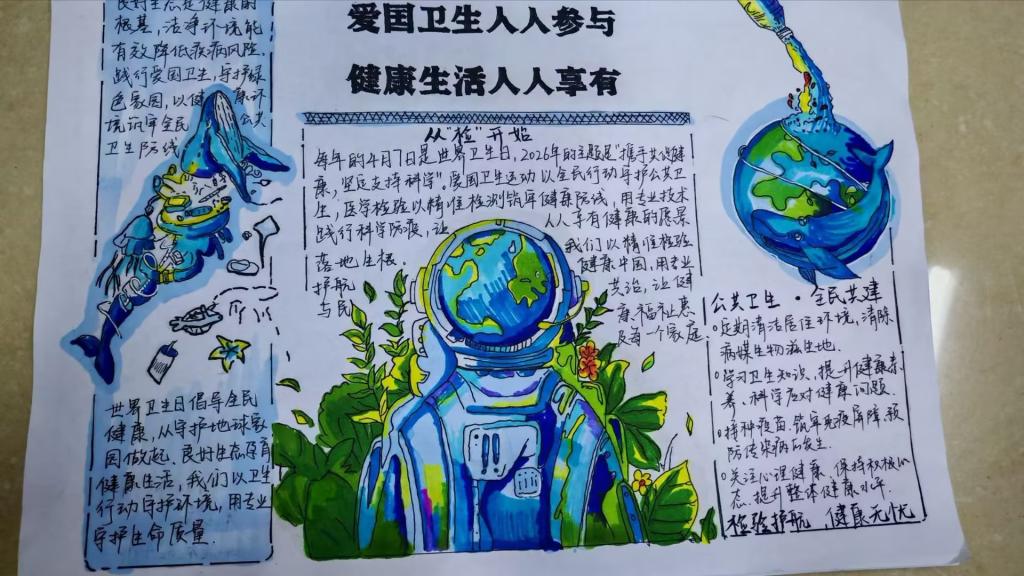 爱国卫生人人参与
健康生活人人享有
良好生态是健康的
根基，洁净环境能
有效降低疾病风险，
践行爱国卫生，守护绿
色家园，以健康环
境筑牢全民公共
卫生防线
世界卫生日倡导全民
健康，从守护地球家
园做起，良好生态孕育
健康生活，我们以卫生
行动守护环境，用专业
守护生命质量.
从"检"开始
每年的4月7日是世界卫生日，2026年的主题是"携手共促健
康，坚定支持科学"。爱国卫生运动以全民行动守护公共卫
生，医学检验以精准检测筑牢健康防线，用专业技术
践行科学防疫，让人人享有健康的愿景
落地生根.我们以精准检验
护航健康中国，用专业
与民共治，让健
康福祉惠
及每一个家庭.
公共卫生·全民共建
定期清洁居住环境，清除
病媒生物滋生地.
学习卫生知识、提升健康素
养、科学应对健康问题.
接种疫苗.筑牢免疫屏障，预
防传染病的发生.
关注心理健康、保持积极心
态、提升整体健康水平.
检验护航 健康无忧